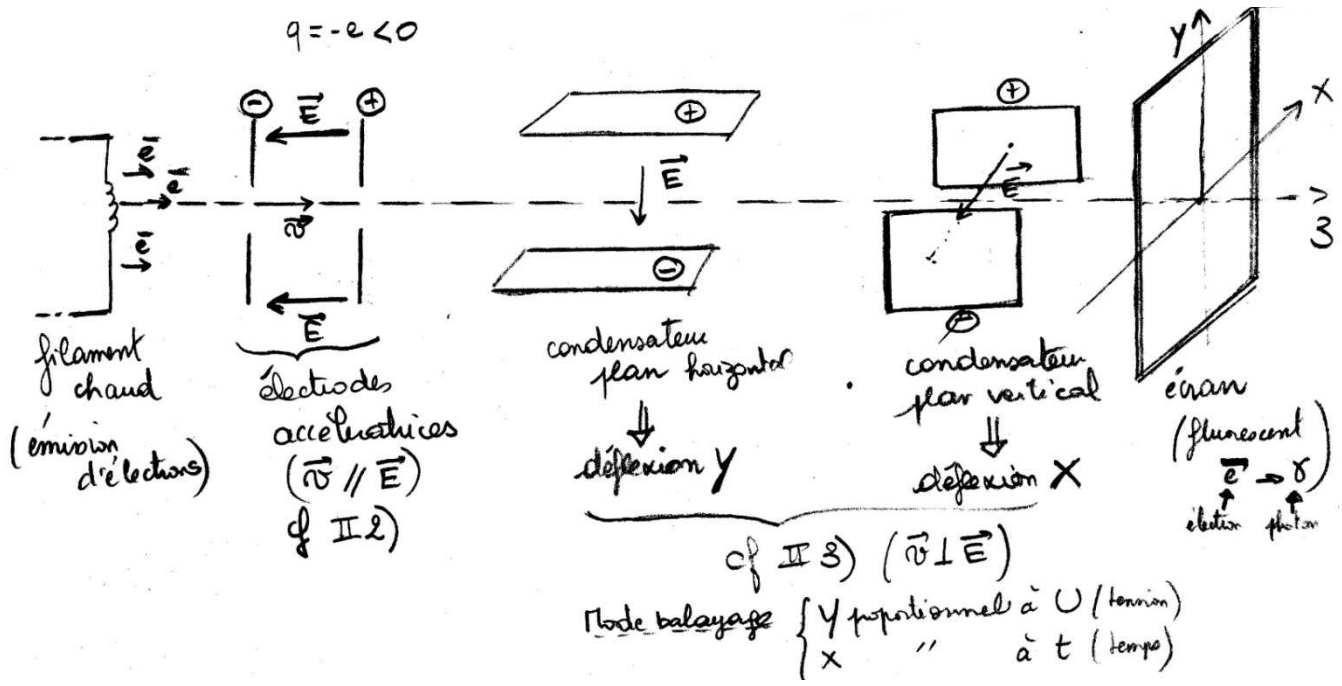 q = -e < 0
⊖ E⃗ ⊕
e⁻
e⁻
e⁻
v⃗
E⃗
⊕
E⃗
⊖
⊕
E⃗
⊖
Y
X
z
filament
chaud
(émission
d'électrons)
électrodes
accélératrices
(v⃗ // E⃗)
cf II 2)
condensateur
plan horizontal
⇓
déflexion Y
condensateur
plan vertical
⇓
déflexion X
écran
(fluorescent
e⁻ → γ)
électron photon
cf II 3) (v⃗ ⊥ E⃗)
Mode balayage { Y proportionnel à U (tension)
X " à t (temps)